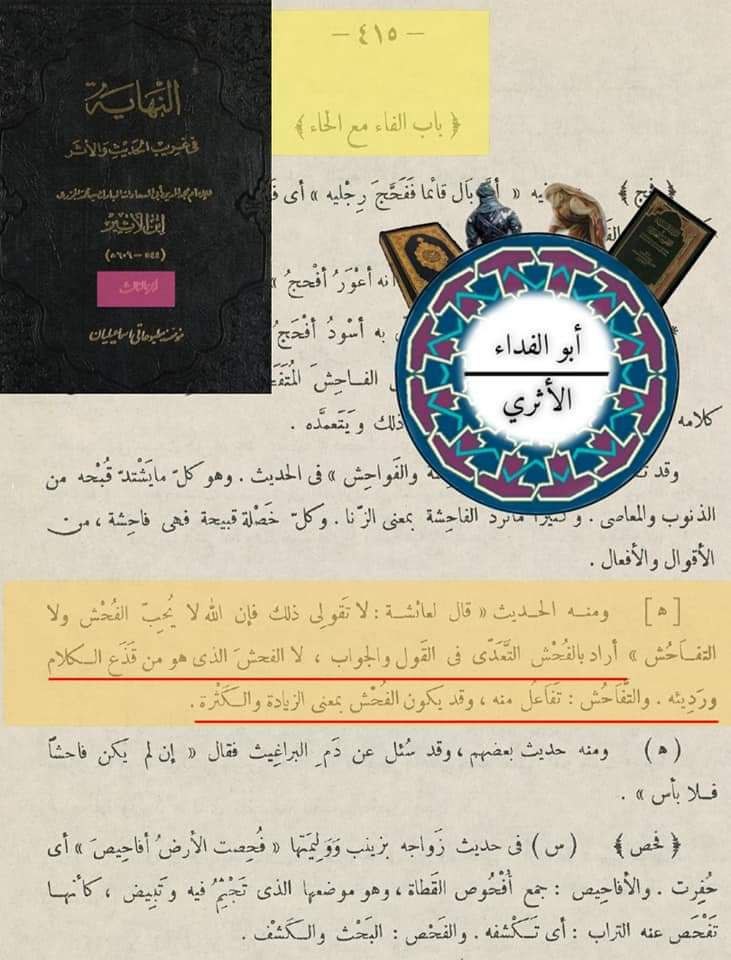 النهاية
في غريب الحديث والأثر
ابن الأثير
(٥٤٤ - ٦٠٦هـ)
— ٤١٥ —
﴿ باب الفاء مع الحاء ﴾
﴿ فحج ﴾ فيه « أنه بال قائما ففَحَّج رِجْليه » أى
أنه أعْوَرُ أفْحجُ »
به أسْودُ أفْحَجُ
الفاحِشَ
كلامه ذلك ويَتَعمَّده .
أبو الفداء
الأثري
وقد والفَواحِش » فى الحديث . وهو كلّ مايَشْتدّ قُبْحه من
الذنوب والمعاصى . وكثيرا ماتَرد الفاحِشة بمعنى الزّنا . وكلّ خَصْلة قبيحة فهى فاحِشة ، من
الأقوال والأفعال .
[ ه ] ومنه الحديث « قال لعائشة : لا تَقولى ذلك فإن الله لا يُحِبّ الفُحْش ولا
التفاحُش » أراد بالفُحْش التَّعَدّى فى القَول والجواب ، لا الفحشَ الذى هو من قَذَع الكلام
ورَديئه . والتَّفَاحُش : تَفَاعُل منه ، وقد يكون الفُحْش بمعنى الزيادة والكَثْرة .
( ه ) ومنه حديث بعضهم ، وقد سُئل عن دَم البراغيث فقال « إن لم يَكن فاحشًا
فلا بأس » .
﴿ فحص ﴾ ( س ) فى حديث زَواجه بزينب ووَلِيمَتِها « فُحِصت الأرضُ أفاحِيصَ » أى
حُفِرت . والأفاحِيص : جمع أُفْحُوص القَطاة ، وهو موضعها الذى تَجْثِمُ فيه وتَبِيض ، كأنها
تَفْحَص عنه التراب : أى تَكْشفه . والفَحْص : البَحْث والكَشْف .